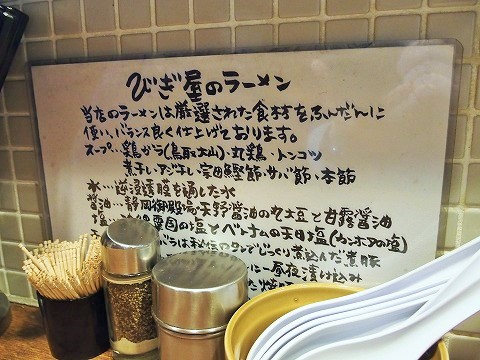 びぎ屋のラーメン
当店のラーメンは厳選された食材をふんだんに
使い、バランス良く仕上げております。
スープ…鶏ガラ(鳥取大山)・丸鶏・トンコツ
煮干し・アジ干し・宗田鰹節・サバ節・本節
水…逆浸透膜を通した水
醤油…静岡御殿場天野醤油の丸大豆と甘露醤油
塩…沖縄粟国の塩とベトナムの天日塩(カンホアの塩)
バラは秘伝のタレでじっくり煮込んだ煮豚
に一昼夜漬け込み